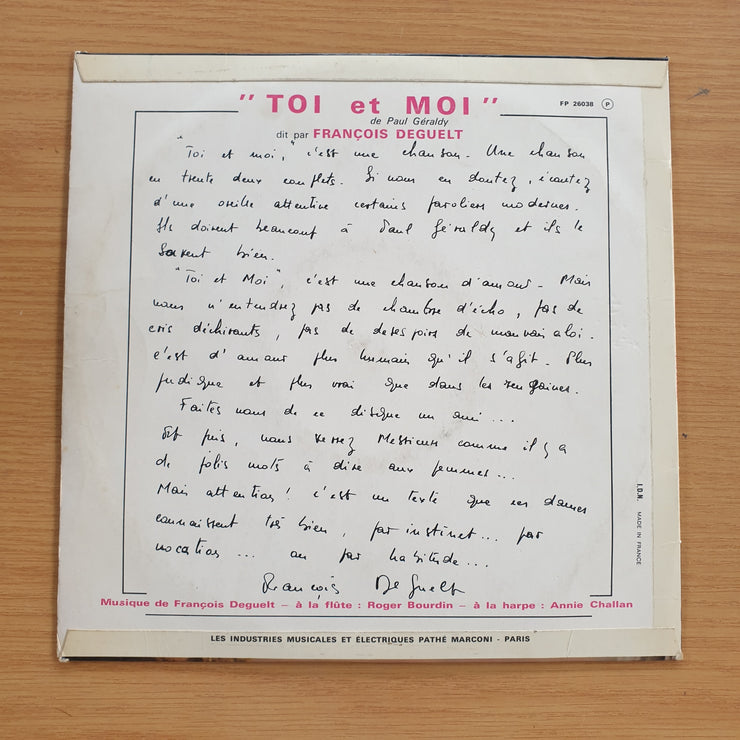 "TOI et MOI"
FP 26038 P
de Paul Géraldy
dit par FRANÇOIS DEGUELT
"Toi et moi," c'est une chanson. Une chanson
en trente deux couplets. Si vous en doutez, écoutez
d'une oreille attentive certains paroliers modernes.
Ils doivent beaucoup à Paul Géraldy et ils le
savent bien.
"Toi et Moi", c'est une chanson d'amour. Mais
vous n'entendrez pas de chambre d'écho, pas de
cris déchirants, pas de desespoirs de mauvais aloi.
c'est d'amour plus humain qu'il s'agit. Plus
pudique et plus vrai que dans les rengaines.
Faites vous de ce disque un ami...
Et puis, vous verrez Messieurs comme il y a
de jolis mots à dire aux femmes...
Mais attention! c'est un texte que ces dames
connaissent très bien, par instinct... par
vocation... ou par habitude...
François Deguelt
I.D.N. MADE IN FRANCE
Musique de François Deguelt – à la flûte : Roger Bourdin – à la harpe : Annie Challan
LES INDUSTRIES MUSICALES ET ÉLECTRIQUES PATHÉ MARCONI - PARIS